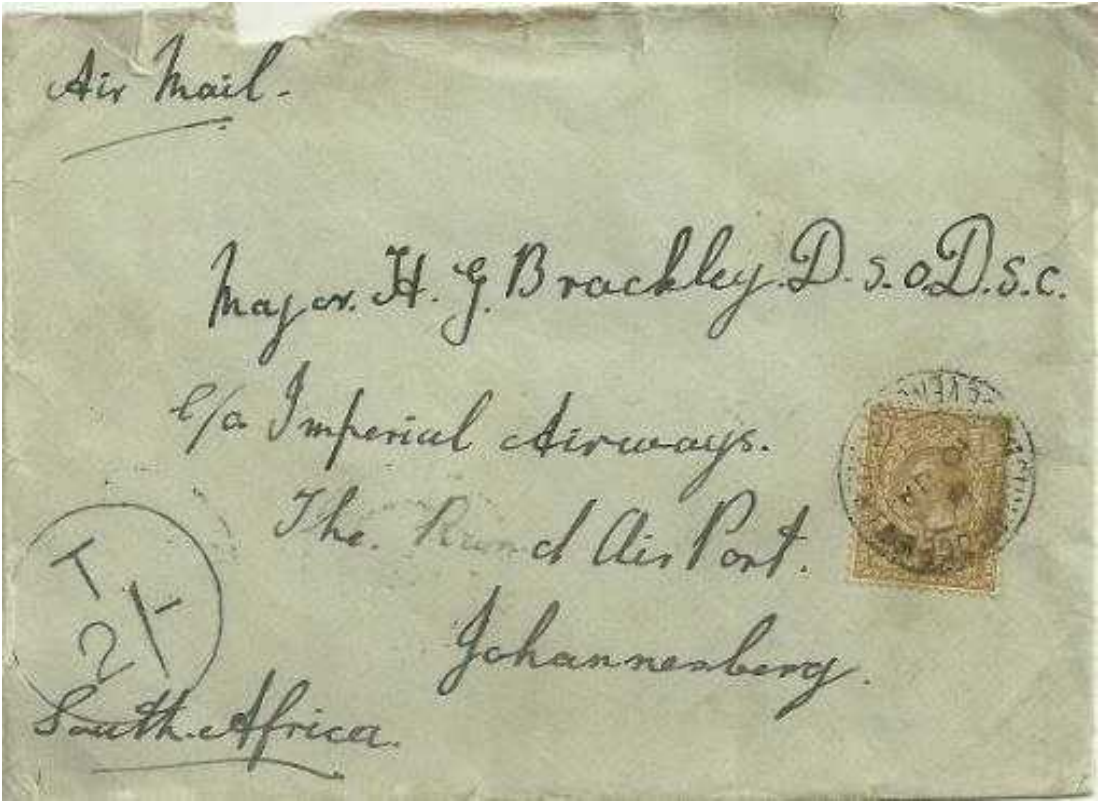 Air Mail.
Major. H. G. Brackley. D.S.O. D.S.C.
c/o Imperial Airways.
The. Rand Air Port.
Johannesberg.
T
South Africa.